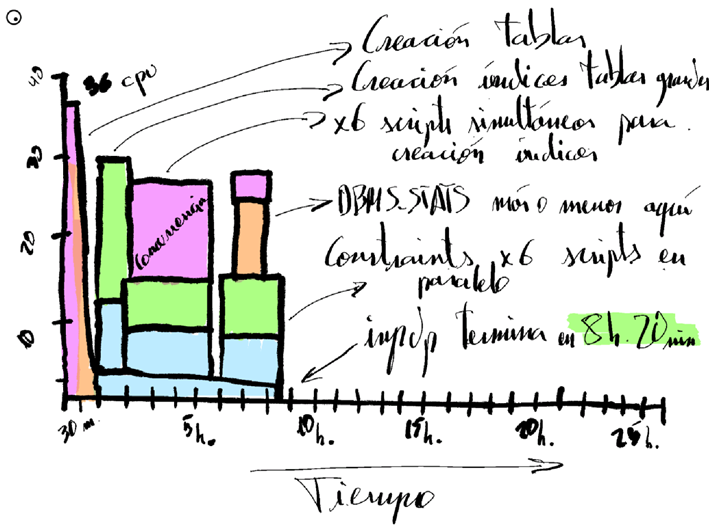 Creación tablas
36 cpu
Creación índices tablas grandes
x6 scripts simultáneos para
creación índices
Concurrencia
DBMS_STATS más o menos aquí
Constraints x6 scripts en
paralelo
impdp termina en 8h. 20 min
40
30
20
10
30 m.
5h.
10h.
15h.
20h.
25h.
Tiempo